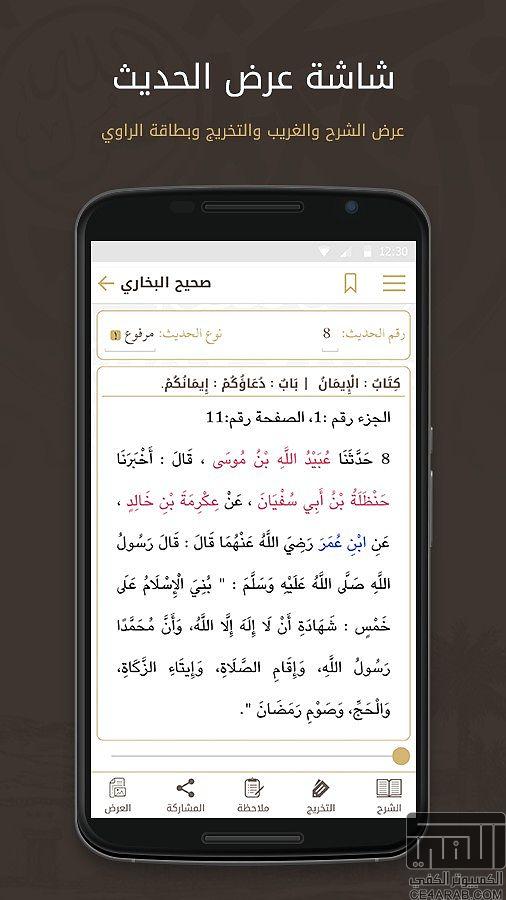 شاشة عرض الحديث
عرض الشرح والغريب والتخريج وبطاقة الراوي
12:30
صحيح البخاري
رقم الحديث: 8 نوع الحديث: مرفوع
كِتَابُ : الْإِيمَانُ | بَابُ : دُعَاؤُكُمْ : إِيمَانُكُمْ.
الجزء رقم :1، الصفحة رقم:11
8 حَدَّثَنَا عُبَيْدُ اللَّهِ بْنُ مُوسَى ، قَالَ : أَخْبَرَنَا
حَنْظَلَةُ بْنُ أَبِي سُفْيَانَ ، عَنْ عِكْرِمَةَ بْنِ خَالِدٍ ،
عَنِ ابْنِ عُمَرَ رَضِيَ اللَّهُ عَنْهُمَا قَالَ : قَالَ رَسُولُ
اللَّهِ صَلَّى اللَّهُ عَلَيْهِ وَسَلَّمَ : " بُنِيَ الْإِسْلَامُ عَلَى
خَمْسٍ : شَهَادَةِ أَنْ لَا إِلَهَ إِلَّا اللَّهُ، وَأَنَّ مُحَمَّدًا
رَسُولُ اللَّهِ، وَإِقَامِ الصَّلَاةِ، وَإِيتَاءِ الزَّكَاةِ،
وَالْحَجِّ، وَصَوْمِ رَمَضَانَ ".
الشرح التخريج ملاحظة المشاركة العرض
الكمبيوتر الكفي
CE4ARAB.COM